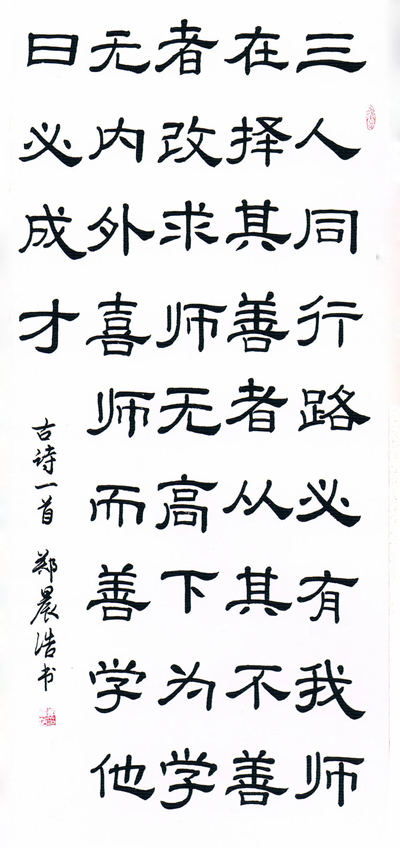 三人同行路必有我师
在择其善者从其不善
者改求师无高下为学
无内外喜师而善学他
曰必成才
古诗一首 郑晨浩书